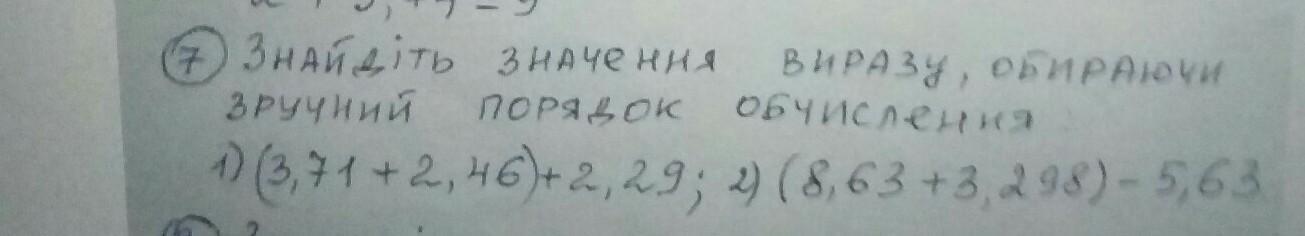 7 Знайдіть значення виразу, обираючи
зручний порядок обчислення
1) (3,71 + 2,46) + 2,29; 2) (8,63 + 3,298) - 5,63